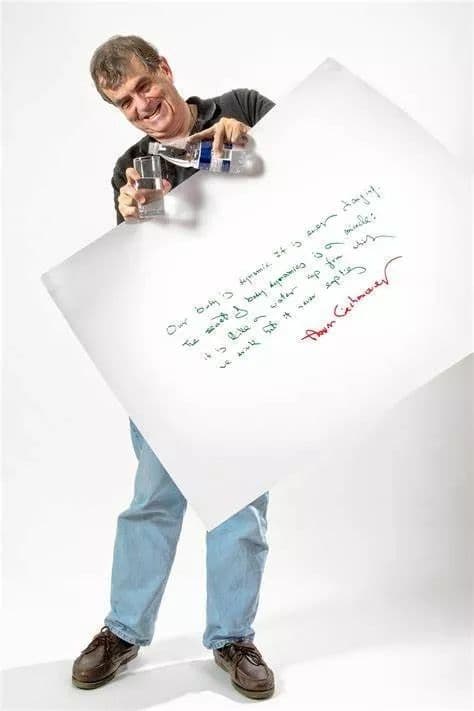 Our body is dynamic. It is ever changing.
The secret of body dynamics is a miracle:
it is like a water cup from which
we drink but it never empties